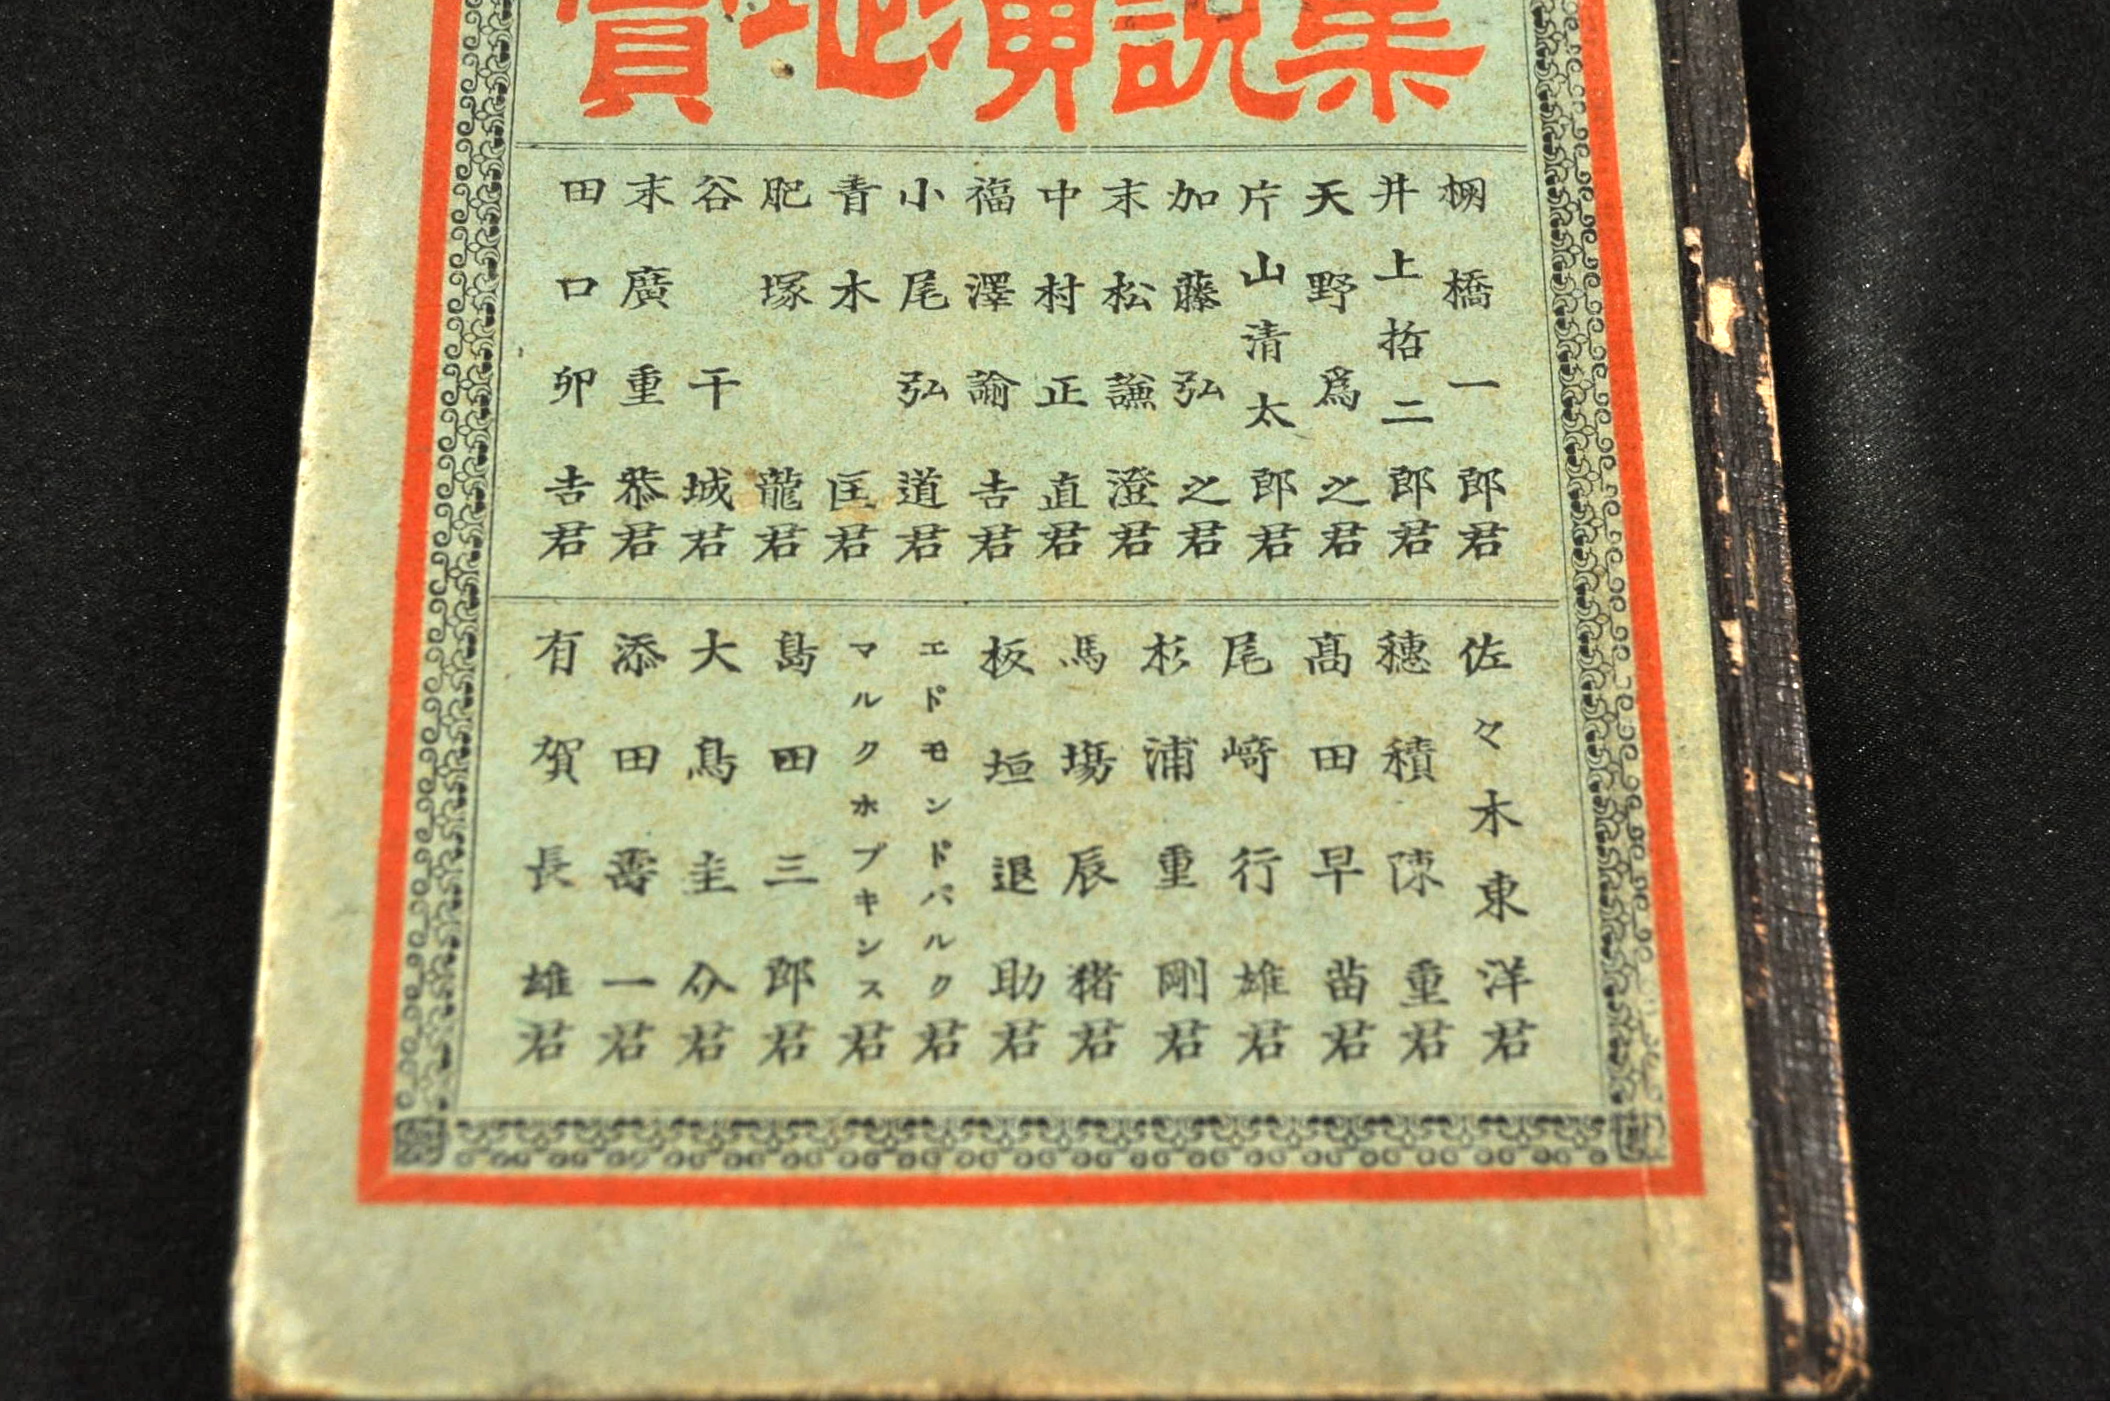 實地演説集
棚橋一郎君
井上哲二郎君
天野爲之君
片山清太郎君
加藤弘之君
末松謙澄君
中村正直君
福澤諭吉君
小尾弘道君
青木匡君
肥塚龍君
谷干城君
末廣重恭君
田口卯吉君
佐々木東洋君
穗積陳重君
髙田早苗君
尾﨑行雄君
杉浦重剛君
馬塲辰猪君
板垣退助君
エドモンドバルク君
マルクホプキンス君
島田三郎君
大鳥圭介君
添田壽一君
有賀長雄君